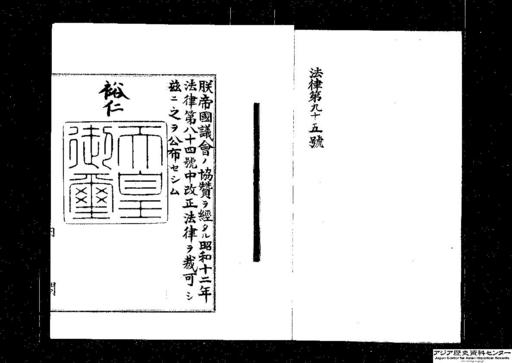 法律第九十五號
朕帝國議會ノ協贊ヲ經タル昭和十二年
法律第八十四號中改正法律ヲ裁可シ
茲ニ之ヲ公布セシム
裕仁
天皇
御璽
内閣
アジア歴史資料センター
Japan Center for Asian Historical Records